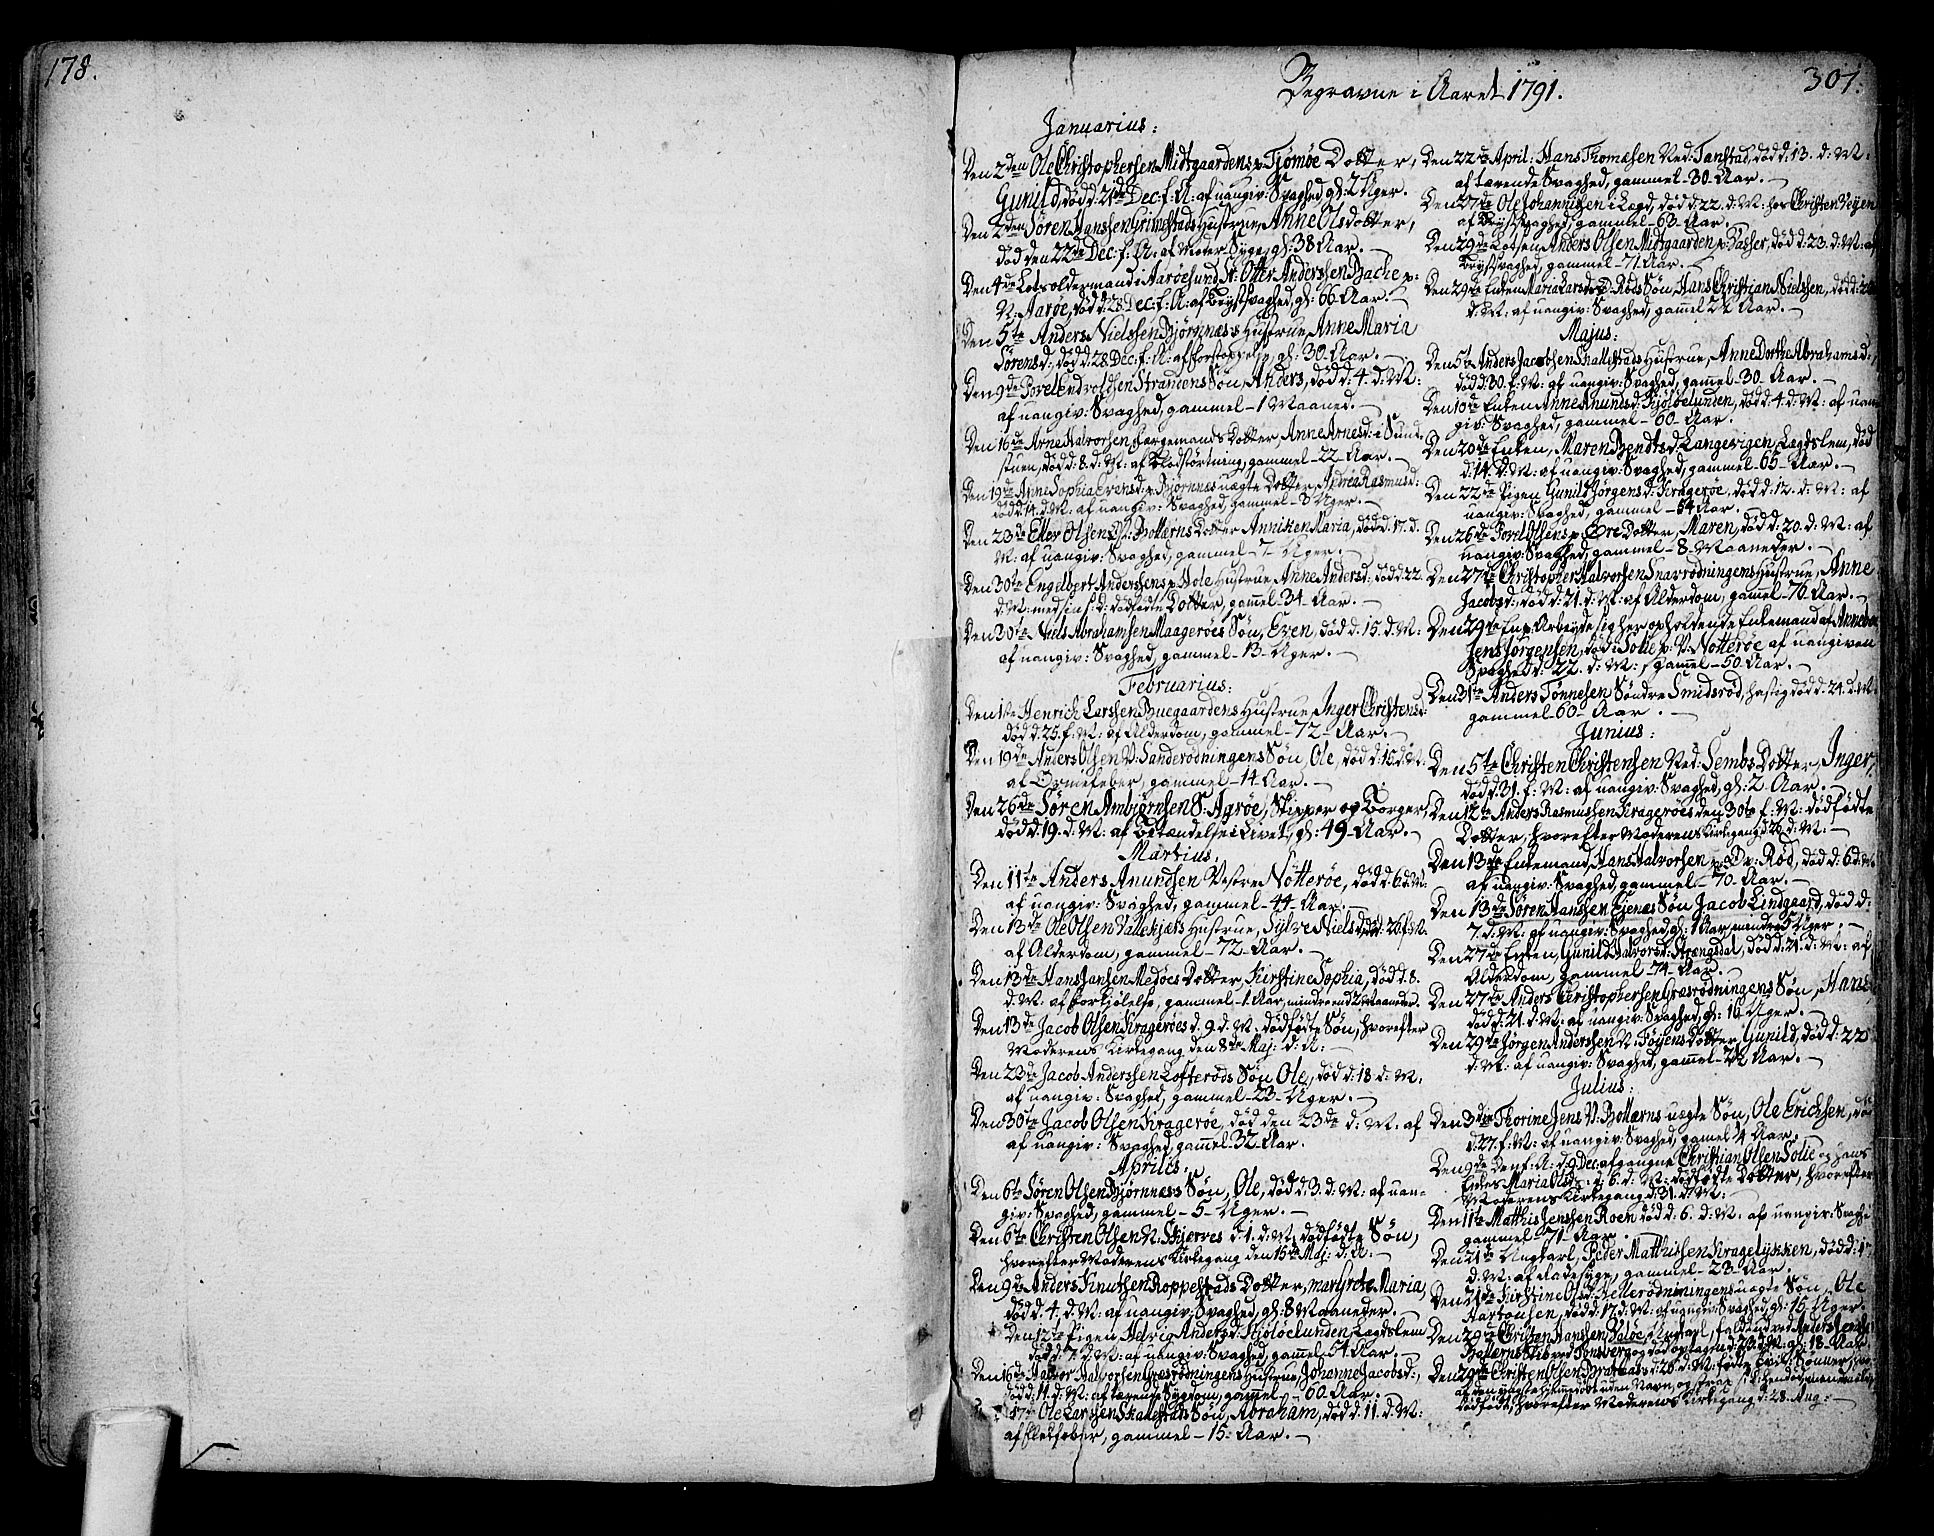 178.
307.
Begravne i Aaret 1791.
Januarius:
Den 2den Ole Christophersen Midtgaardens p. Tjømøe Dotter,
Gunild, død d. 21de Dec: f: A: af uangiv: Svaghed, gl: 2 Uger.
Den 2den Søren Hanssen Grimestads Hustrue, Anne Olsdotter,
død den 22de Dec: f: A. af Moder Syge, gl: 38 Aar.
Den 4de Lodsoldermand i Aarøesund Sr. Otter Anderssen Bache p:
N: Aarøe, død d: 28 Dec: f: A: af Brystsvaghed, gl: 66 Aar.
Den 5te Anders Nielssen Bjørnnæss Hustrue, Anne Maria
Sørensd:, død d: 28 Dec: f: A: af Forstoppelse, gl: 30 Aar.
Den 9de Povel Endvoldsen Strandens Søn, Anders, død d: 4. d: M:
af uangiv: Svaghed, gammel 1 Maaned.
Den 16de Arne Halvorsen Færgemands Dotter, Anne Arnesd: i Sund-
stuen, død d: 8. d: M: af Blodstørtning, gammel 22 Aar.
Den 19de Anne Sophia Evensd: p. Bjørnnæs uægte Dotter, Andrea Rasmusd:
død d: 14. d: M: af uangiv: Svaghed, gammel 3 Uger.
Den 23de Ellev Olsen V: Bollærns Dotter Anniken Maria, død d: 17. d.
M: af uangiv: Svaghed, gammel 7 Uger.
Den 30te Engelbert Anderssens p. Hole Hustrue, Anne Andersd:, død d: 22.
d: M: med sin s: D: dødfødte Dotter, gam̄el 34 Aar.
Den 30te Niels Abrahamsen Maagerøes Søn, Even, død d: 15. d: M:
af uangiv: Svaghed, gammel 13 Uger.
Februarius:
Den 1ste Henrich Larssen Buegaardens Hustrue, Inger Christensd:
død d: 25. f: M: af Alderdom, gammel 72 Aar.
Den 19de Anders Olsen V: Sanderødningens Søn, Ole, død d: 15. d: M:
af Ormefeber, gammel 14 Aar.
Den 26de Søren Ambiørnsen S: Agrøe, Skipper og Borger,
død d: 19. d: M: af Betændelse i Livet, gl: 49 Aar.
Martius:
Den 11te Anders Anundsen Vestre Nøtterøe, død d: 6. d: M:
af uangiv: Svaghed, gammel 44 Aar.
Den 13de Ole Olsen Vallekjærs Hustrue, Sylve Nielsd, død: 26. f: M:
af Alderdom, gammel 72 Aar.
Den 13de Hans Jansen Medøes Dotter, Kirstine Sophia, død d: 8.
d: M: af Forkjølelse, gammel 1 Aar, mindre end 2 Maaneder.
Den 13de Jacob Olsen Kragerøes d. 9. d: M: dødfødte Søn, hvorefter
Moderens Kirkegang den 8de Maj: d: A:
Den 23de Jacob Anderssen Lofterøds Søn Ole, død d: 18 d: M:
af uangiv: Svaghed, gammel 23 Uger.
Den 30te Jacob Olsen Kragerøe, død den 23de d: M: af
af uangiv: Svaghed, gam̄el 32 Aar.
Aprilis:
Den 6te Søren Olsen Bjørnnæss Søn, Ole, død d: 3. d: M: af uan-
giv: Svaghed, gammel 5 Uger.
Den 6te Christen Olsen N: Skjerves d: 1. d: M: dødfødte Søn,
hvorefter Moderens Kirkegang den 15te Maj: d: A:
Den 9de Anders Knutsen Roppestads Dotter, Margrete Maria,
død d: 4. d: M: af uangiv: Svaghed, gl: 8 Maaneder.
Den 12te Pigen Helvig Andersd: Kjøløelunden Lægdslem
død d: 7. d: M: af uangiv: Svaghed, gam̄el 51 Aar.
Den 16de Halvor Halvorsen Græsrødningens Hustrue, Johanne Jacobsd:,
død d: 11. d: M: af tærende Sygdom, gam̄el 60 Aar.
17de Ole Larssen Skallestads Søn, Abraham, død d: 11. d: M:
af Fletfeber, gammel 15 Aar.
Den 22de April: Hans Thomæsen Ned: Tanstad, død d: 13. d: M:
af tærende Svaghed, gammel 30 Aar.
Den 27de Ole Johannissen i Lægd, død d: 22. d: M: hos Christen Vegen
af Brystsvaghed, gammel 63 Aar.
Den 29de Lotsen Anders Olsen Midtgaarden p. Hasser, død d: 23. d: M: af
Brystsvaghed, gammel 71 Aar.
Den 29de Enken Maria Larsd: Røds Søn, Hans Christian Nielssen, død d:
d: M: af uangiv: Svaghed, gam̄el 2½ Aar.
Majus:
Den 5te Anders Jacobsen Skallestads Hustrue, Anne Dorthe Abrahamsd:,
død d: 30. f: M: af uangiv: Svaghed, gam̄el 30 Aar.
Den 10de Enken Anne Anundsd: Kjøløelunden, død d: 4. d: M: af uan-
giv: Svaghed, gammel 60 Aar.
Den 20de Enken, Maren Bendtsd: Langevigen, Lægdslem, død
d: 14. d: M: af uangiv: Svaghed, gammel 65 Aar.
Den 22de Pigen Gunild Jørgensd: Kragerøe, død d: 12. d: M: af
uangiv: Svaghed, gammel 54 Aar.
Den 26de Povel Olsens p. Øre Dotter, Maren, død d: 20. d: M: af
uangiv: Svaghed, gammel 8 Maaneder.
Den 27de Christopher Halvorsen Snarrødningens Hustrue, Anne
Jacobsd:, død d: 21. d: M: af Alderdom, gam̄el 76 Aar.
Den 29de En p. Arbeyde sig her opholdende Enkemand af
Jens Jørgensen, død i Solie p. V: Nøtterøe af uangiven
Svaghed d: 22. d: M:, gam̄el 50 Aar.
Den 31te Anders Tønnesen Søndre Smidsrød, hastig død d: 24. d: M:
gammel 60 Aar.
Junius:
Den 5te Christen Christensen Ned: Sembs Dotter, Inger,
død d: 31. f: M: af uangiv: Svaghed, gl: 2 Aar.
Den 12te Anders Rasmussen Kragerøes den 30te f: M: dødfødte
Dotter, hvorefter Moderens Kirkegang d: 26 d: M:
Den 13de Enkemand, Hans Halvorsen p. Øv: Rød, død d: 6. d: M:
af uangiv: Svaghed, gammel 70 Aar.
Den 13de Søren Hanssen Ejenæs Søn Jacob Lindgaard, død d:
7. d: M: af uangiv: Svaghed, gl: 1 Aar, mindre 3 Uger.
Den 27de Enken, Gunild Halvorsd: Strengsdal, død d: 21. d: M: af
Alderdom, gammel 74 Aar.
Den 27de Anders Christophersen Græsrødningens Søn, Hans,
død d: 21. d: M: af uangiv: Svaghed, gl: 16 Uger.
Den 29de Jørgen Anderssen N: Føyens Dotter, Gunild, død d: 22
d: M: af uangiv: Svaghed, gam̄el 7½ Aar.
Julius:
Den 3die Thorine Jens V: Bollærns uægte Søn, Ole Erichsen, død
d: 27. f: M: af uangiv: Svaghed, gam̄el ¼ Aar.
Den 9de Den f: A: d: 9 Dec: afgangne Christian Olsen Solie og hans
Enkes Maria Olsd:s d: 6. d: M: dødfødte Dotter, hvorefter
Moderens Kirkegang d: 31. d: M:
Den 11te Matthis Jenssen Roen død d: 6. d: M: af uangiv: Svaghe
gammel 71 Aar.
Den 21de Ungkarl, Peder Matthissen Kragelykken, død d: 17.
d: M: af Radesyge, gammel 23 Aar.
Den 21de Kirstine Olsd: Hellerødningens uægte Søn, Ole
død d: 17. d: M: af uangiv: Svaghed, gl: 15 Uger.
Den 29de Christen Hanssen Ungkarl, falden ved Anders
Bollærns Skib ved Tønsberg og død optagen d: 26. d: M: gl: 18 Aar.
Den 29de Christen Olsen d: 26. d: M: fødte Tvil. Sønner,
dødfødt, hvorefter Moderens Kirkegang d: 28. Aug: